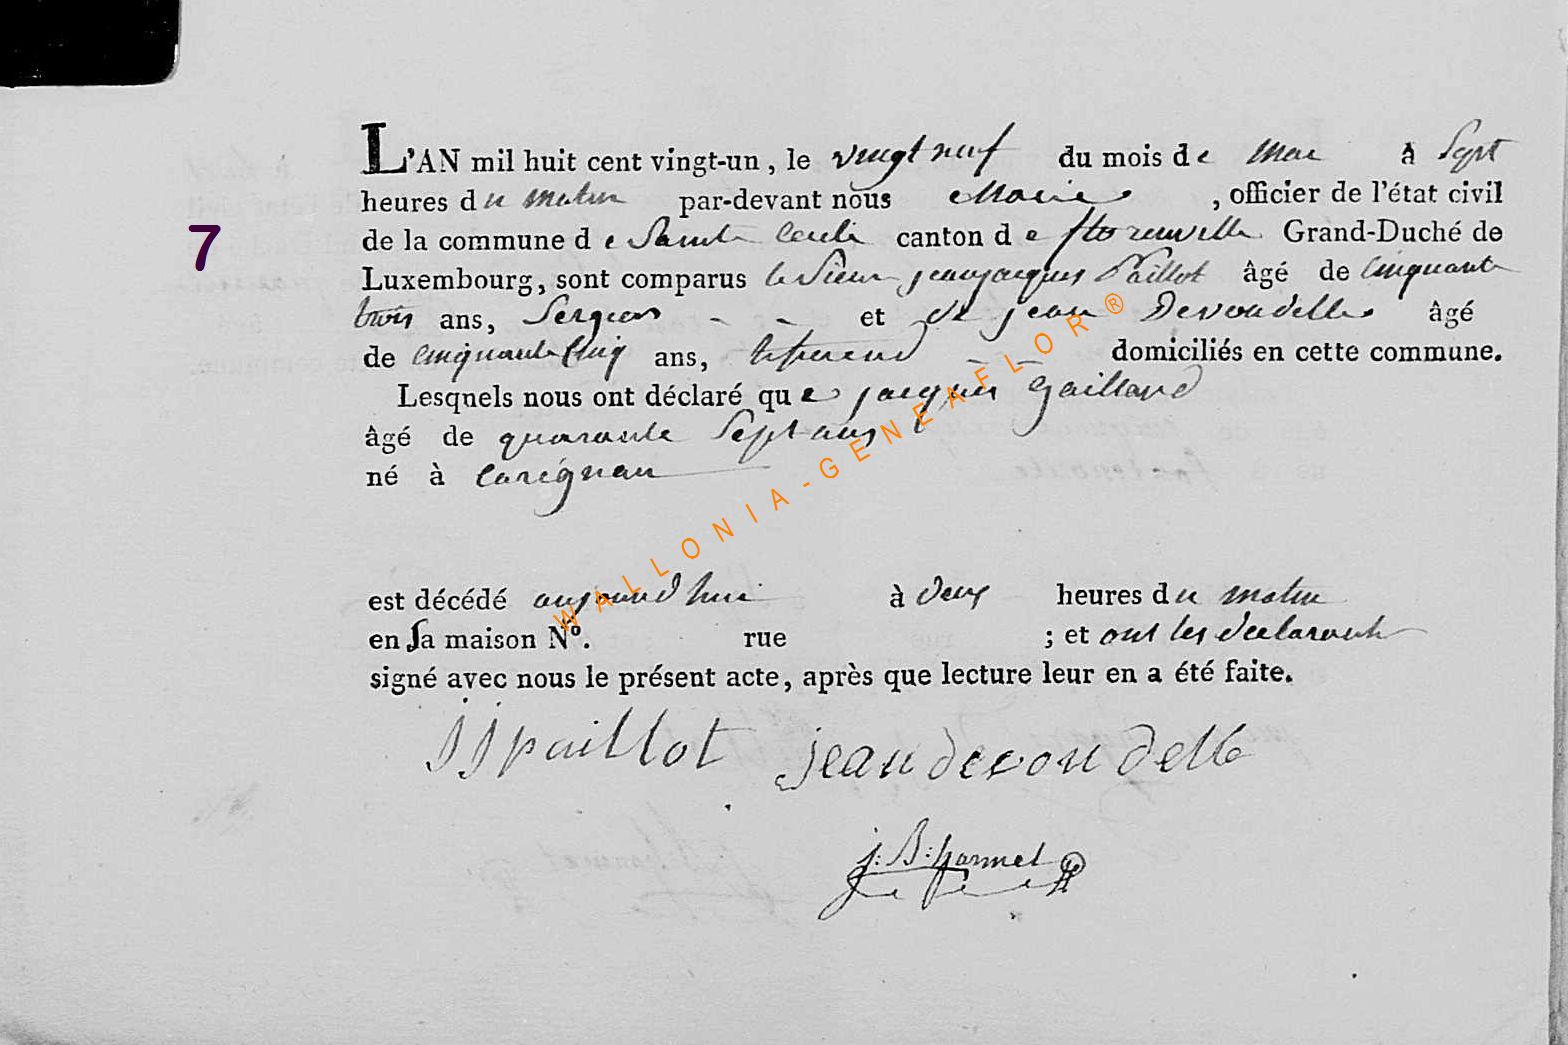 L'AN mil huit cent vingt-un, le vingt neuf du mois de Mai à Sept
heures du matin par-devant nous Maire, officier de l'état civil
7
de la commune de Sainte Cecile canton de florenville Grand-Duché de
Luxembourg, sont comparus le Sieur jean jacques Paillot âgé de cinquante
trois ans, et de jean Devoudelle âgé
de cinquante Cinq ans, domiciliés en cette commune.
Lesquels nous ont déclaré que jacques gaillard
âgé de quarante Sept ans
né à Carignan
est décédé aujourd hui à deux heures du matin
en Sa maison N°. rue ; et ont les declarants
signé avec nous le présent acte, après que lecture leur en a été faite.
jjpaillot jean devoudelle
j: B: hormel
WALLONIA-GENEAFLOR®